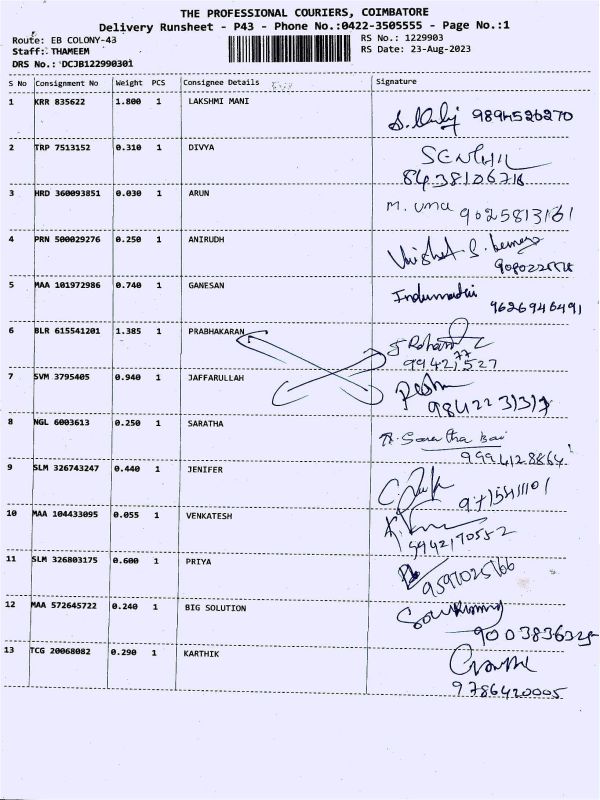 THE PROFESSIONAL COURIERS, COIMBATORE
Delivery Runsheet - P43 - Phone No.:0422-3505555 - Page No.:1
Route: EB COLONY-43 RS No.: 1229903
Staff: THAMEEM RS Date: 23-Aug-2023
DRS No.: DCJB122990301
S No Consignment No Weight PCS Consignee Details Signature
1 KRR 835622 1.800 1 LAKSHMI MANI 9894526270
2 TRP 7513152 0.310 1 DIVYA SENTHIL
8438106718
3 HRD 360093851 0.030 1 ARUN M. Uma 9025813161
4 PRN 500029276 0.250 1 ANIRUDH
5 MAA 101972986 0.740 1 GANESAN Indumathi
9626946491
6 BLR 615541201 1.385 1 PRABHAKARAN
7 SVM 3795405 0.940 1 JAFFARULLAH
9842231317
8 NGL 6003613 0.250 1 SARATHA R. Saratha Bai
9994128864
9 SLM 326743247 0.440 1 JENIFER
10 MAA 104433095 0.055 1 VENKATESH
9942170552
11 SLM 326803175 0.600 1 PRIYA
9597025166
12 MAA 572645722 0.240 1 BIG SOLUTION
9003836325
13 TCG 20068082 0.290 1 KARTHIK
9786420005